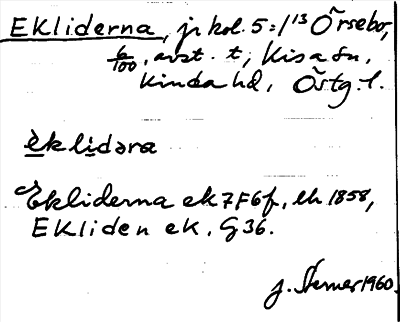 Ekliderna, jr kol. 5:1/13 Örsebo,
6/100, avst. t, Kisa sn,
Kinda hd, Östg. l.
èklìdəra
Ekliderna ek 7F6f, lh 1858,
Ekliden ek. G36.
J. Sterner 1960.